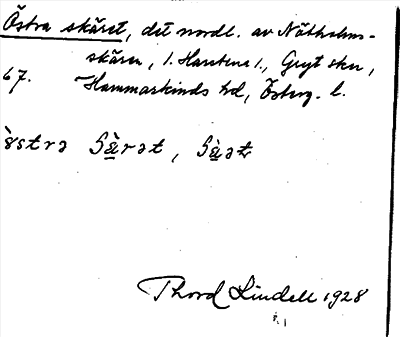 Östra skäret, det nordl. av Nötholms-
skären, 1. Harstena 1., Gryt skn,
67. Hammarkinds hd, Österg. l.
östrə Særət, Sæət
Thord Lindell 1928